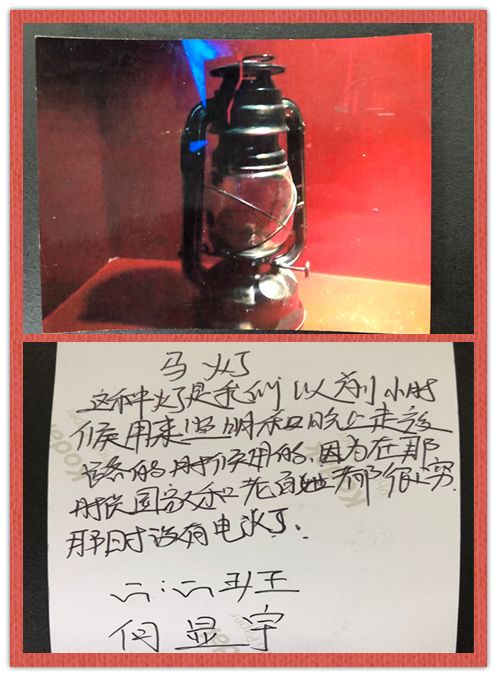 马灯
这种灯是我们以前小时
候用来照明和晚上走夜
路的时候用的,因为在那
时代国家和老百姓都很穷.
那时没有电灯.
六:六班
何显宇